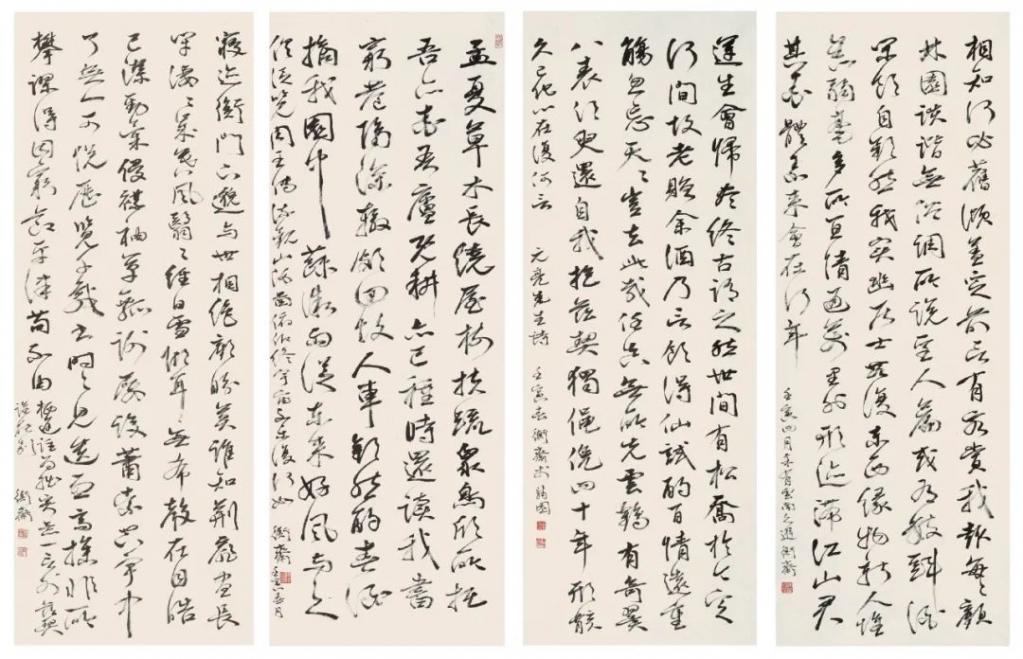 相知何必舊傾蓋定前言有客賞我趣每〻顧
林園談諧無俗調所說聖人篇或有數斗酒
閑飲自歡然我實幽居士無復東西緣物新人惟
舊弱毫多所宣情通萬里外形迹滯江山君
其愛體素來會在何年
壬寅四月 衡齋
運生會歸盡終古謂之然世間有松喬於今定
何間故老贈余酒乃言飲得仙試酌百情遠重
觴忽忘天〻豈去此哉任真無所先雲鶴有奇翼
八表須臾還自我抱茲契獨僶俛四十年形骸
久已化心在復何言
元亮先生詩 壬寅春衡齋
孟夏草木長繞屋樹扶疏衆鳥欣所托
吾亦愛吾廬既耕亦已種時還讀我書
窮巷隔深轍頗回故人車歡然酌春酒
摘我園中蔬微雨從東來好風與之
俱泛覽周王傳流觀山海圖俯仰終宇宙不樂復何如 衡齋 壬寅春月
寢迹衡門下邈與世相絕顧盼莫誰知荊扉晝長
閉淒〻歲暮風翳〻經日雪傾耳無希聲在目皓
已潔勁氣侵襟袖簞瓢謝屢設蕭索空宇中
了無一可悅歷覽千載書時〻見遺烈高操非所
攀謬得固窮節平津苟不由棲遲詎為拙寄意一言外茲契
誰能別 衡齋